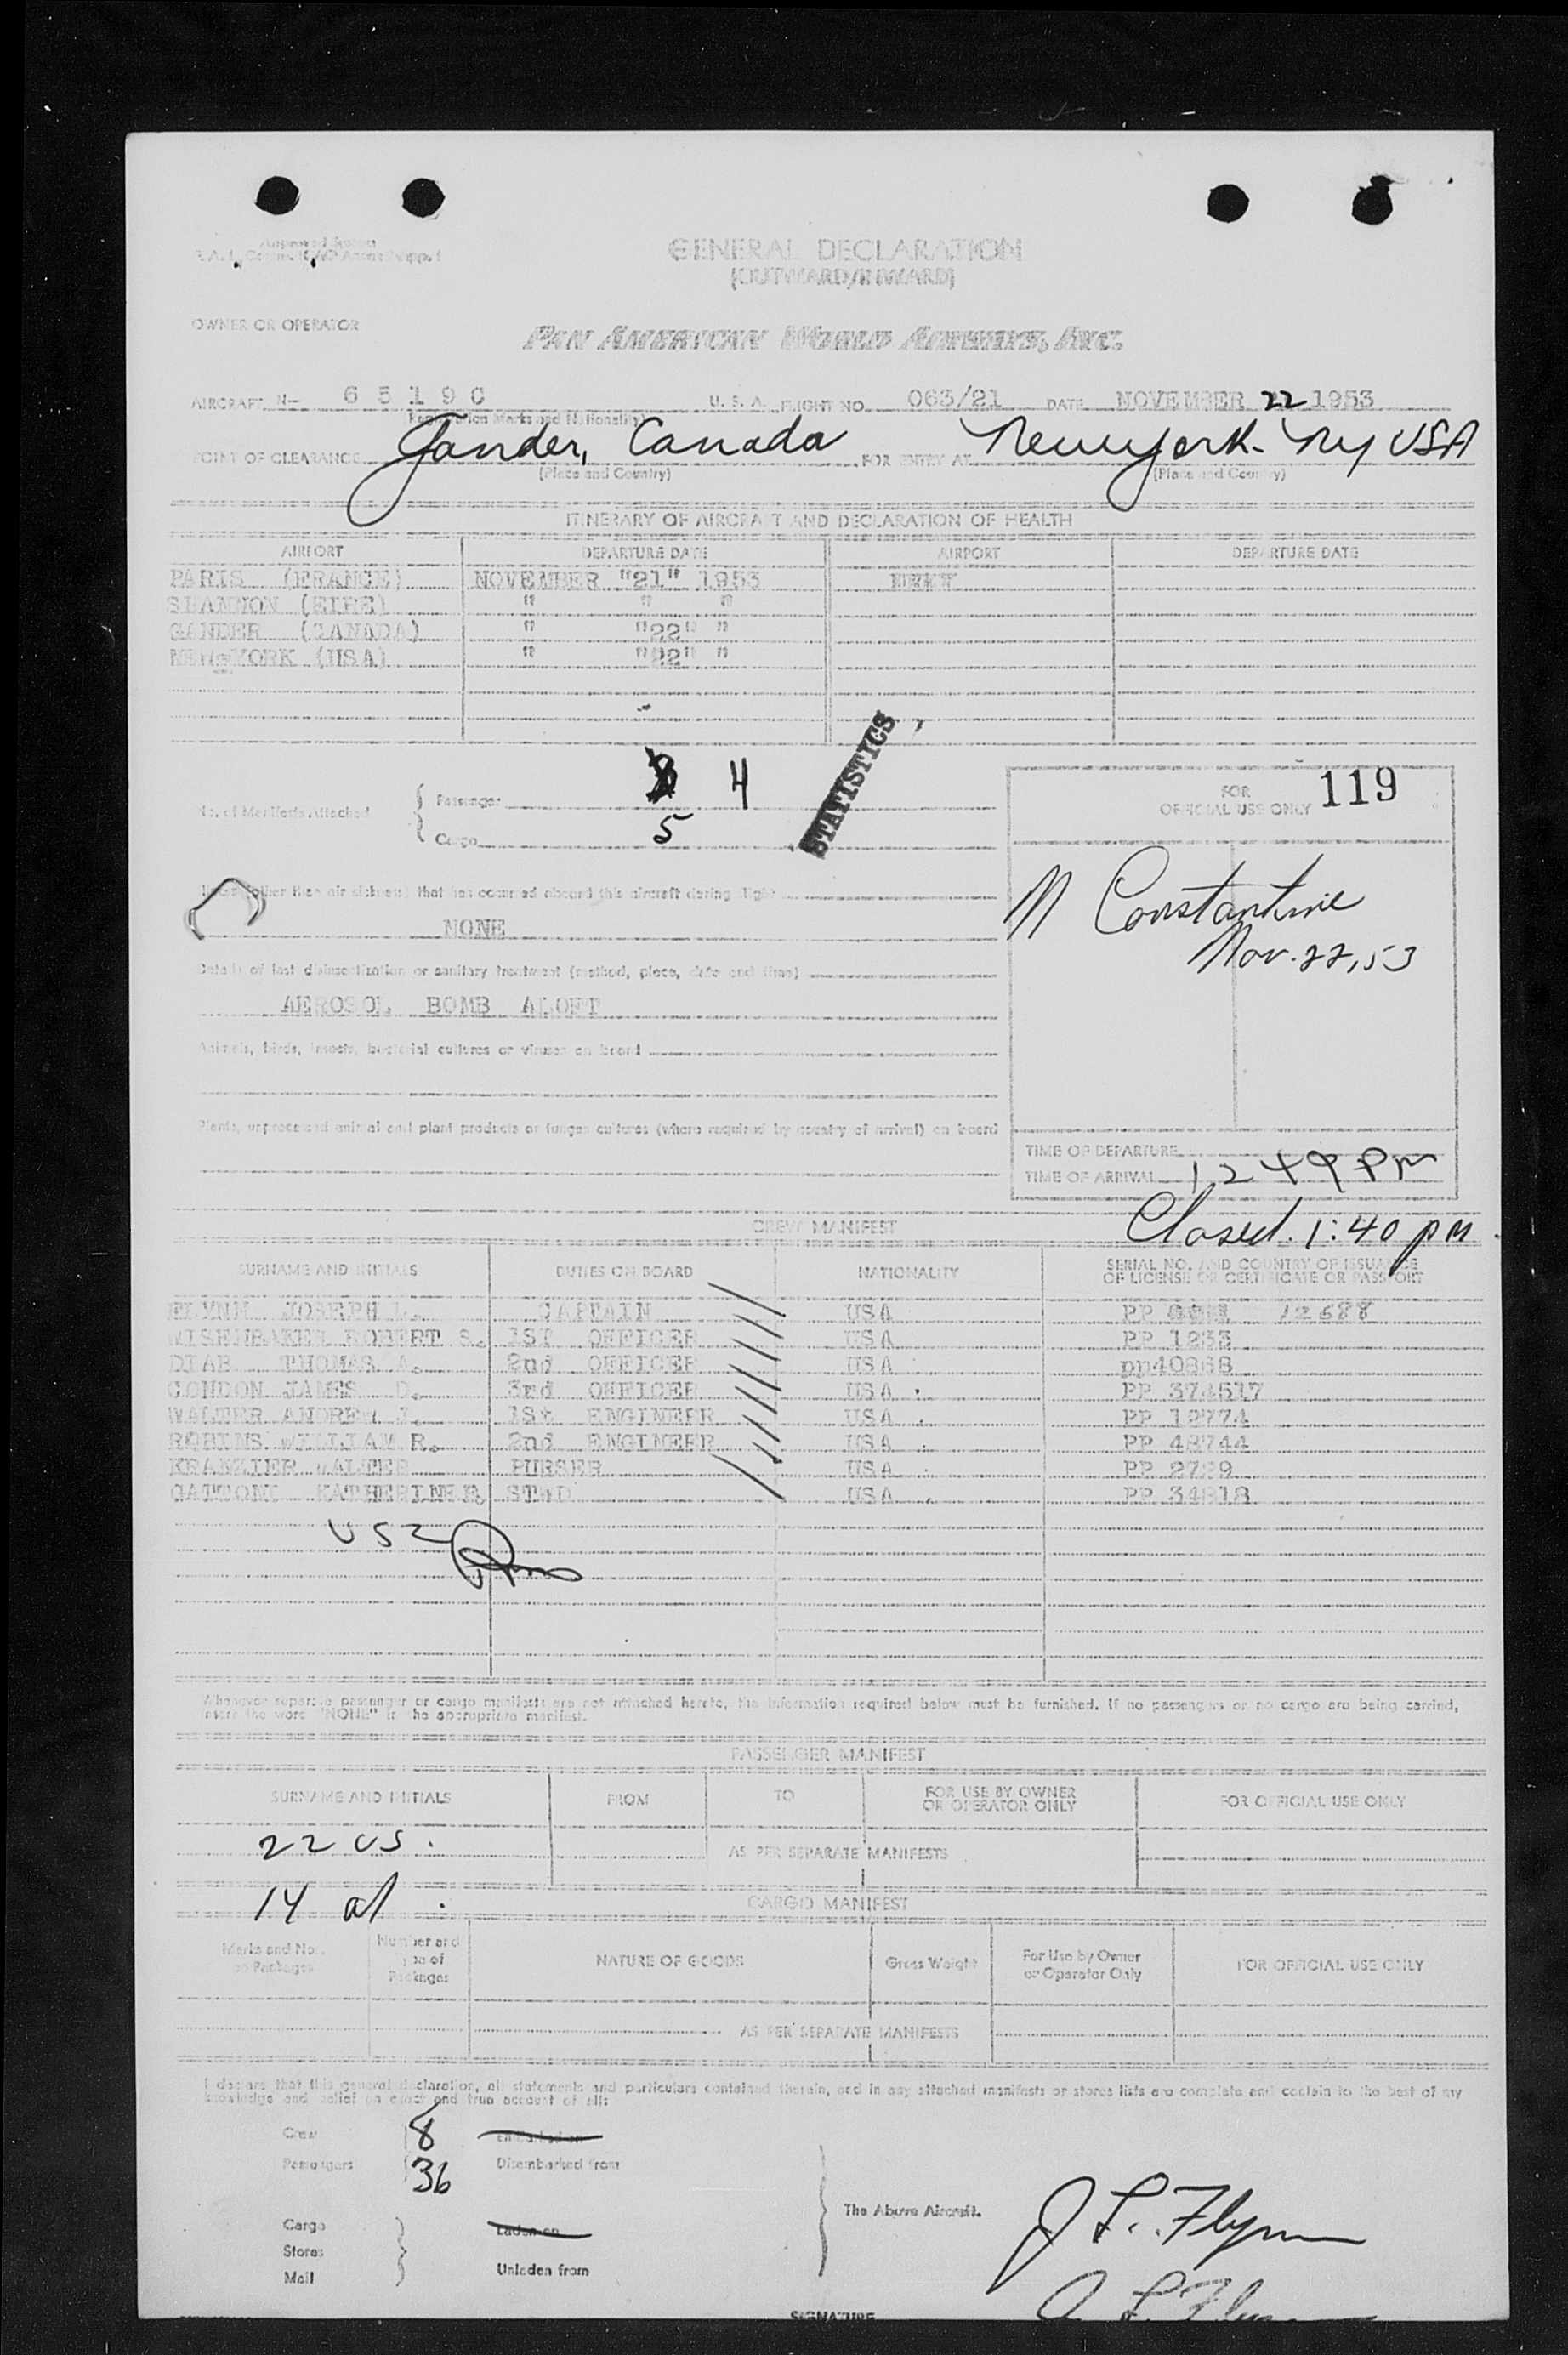 GENERAL DECLARATION
(OUTWARD/INWARD)
OWNER OR OPERATOR
PAN AMERICAN WORLD AIRWAYS, INC.
AIRCRAFT N- 6 5 1 9 C U. S. A. FLIGHT NO. 063/21 DATE NOVEMBER 22 1953
(Registration Marks and Nationality)
POINT OF CLEARANCE Gander, Canada FOR ENTRY AT New york - Ny USA
(Place and Country) (Place and Country)
ITINERARY OF AIRCRAFT AND DECLARATION OF HEALTH
AIRPORT DEPARTURE DATE AIRPORT DEPARTURE DATE
PARIS (FRANCE) NOVEMBER "21" 1953
SHANNON (EIRE) " " "
GANDER (CANADA) " "22" "
NEW YORK (USA) " "22" "
STATISTICS
No. of Manifests Attached { Passenger 4
Cargo 5
FOR
OFFICIAL USE ONLY 119
Illness (other than air sickness) that has occurred aboard this aircraft during flight
NONE
M Constantine
Nov. 22, 53
Details of last disinsectization or sanitary treatment (method, place, date and time)
AEROSOL BOMB ALOFT
Animals, birds, insects, bacterial cultures or viruses on board
Plants, unprocessed animal and plant products or fungus cultures (where required by country of arrival) on board
TIME OF DEPARTURE
TIME OF ARRIVAL 12 49 Pm
Closed. 1:40 pm
CREW MANIFEST
SURNAME AND INITIALS DUTIES ON BOARD NATIONALITY SERIAL NO. AND COUNTRY OF ISSUANCE
OF LICENSE OR CERTIFICATE OR PASSPORT
FLYNN JOSEPH L. CAPTAIN USA PP 12688
WISENBAKER ROBERT S. 1ST OFFICER USA PP 1233
DIAB THOMAS A. 2nd OFFICER USA pp40868
CONDON JAMES D. 3rd OFFICER USA PP 374517
WALTER ANDREW J. 1St ENGINEER USA PP 12774
ROBINS WILLIAM R. 2nd ENGINEER USA PP 48744
KRANZIER WALTER PURSER USA PP 2729
GATTONI KATHERINE R. STWD USA PP 34818
Whenever separate passenger or cargo manifests are not attached hereto, the information required below must be furnished. If no passengers or no cargo are being carried,
insert the word "NONE" in the appropriate manifest.
PASSENGER MANIFEST
SURNAME AND INITIALS FROM TO FOR USE BY OWNER
OR OPERATOR ONLY FOR OFFICIAL USE ONLY
22 US.
AS PER SEPARATE MANIFESTS
14 al
CARGO MANIFEST
Marks and Nos.
on Packages Number and
Type of
Packages NATURE OF GOODS Gross Weight For Use by Owner
or Operator Only FOR OFFICIAL USE ONLY
AS PER SEPARATE MANIFESTS
I declare that this general declaration, all statements and particulars contained therein, and in any attached manifests or stores lists are complete and contain to the best of my
knowledge and belief an exact and true account of all:
Crew 8 Embarked on
Passengers 36 Disembarked from
The Above Aircraft.
J L. Flynn
Cargo Laden on
Stores
Mail Unladen from
SIGNATURE J L Flynn